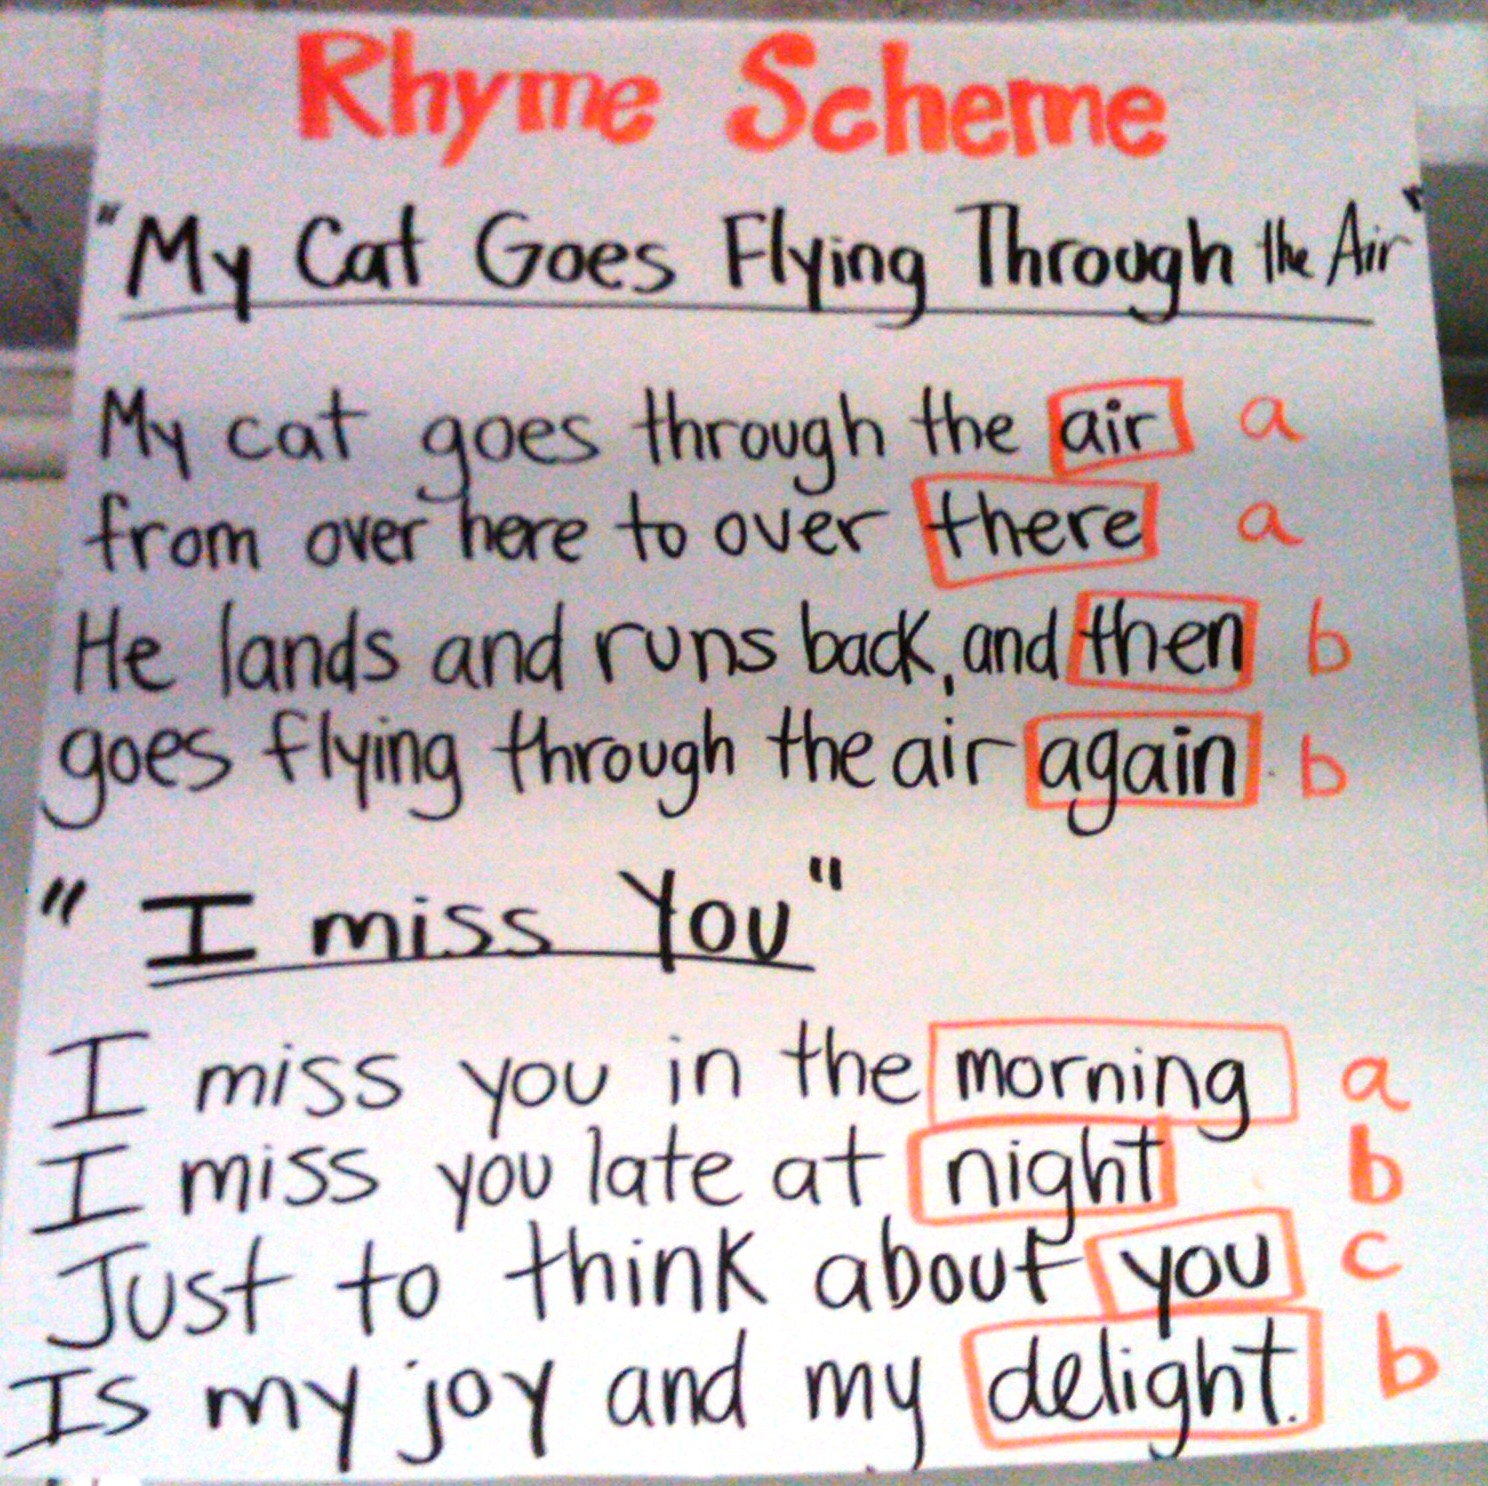 Rhyme Scheme
"My Cat Goes Flying Through the Air"
My cat goes through the air a
from over here to over there a
He lands and runs back, and then b
goes flying through the air again. b
"I miss You"
I miss you in the morning a
I miss you late at night b
Just to think about you c
Is my joy and my delight. b